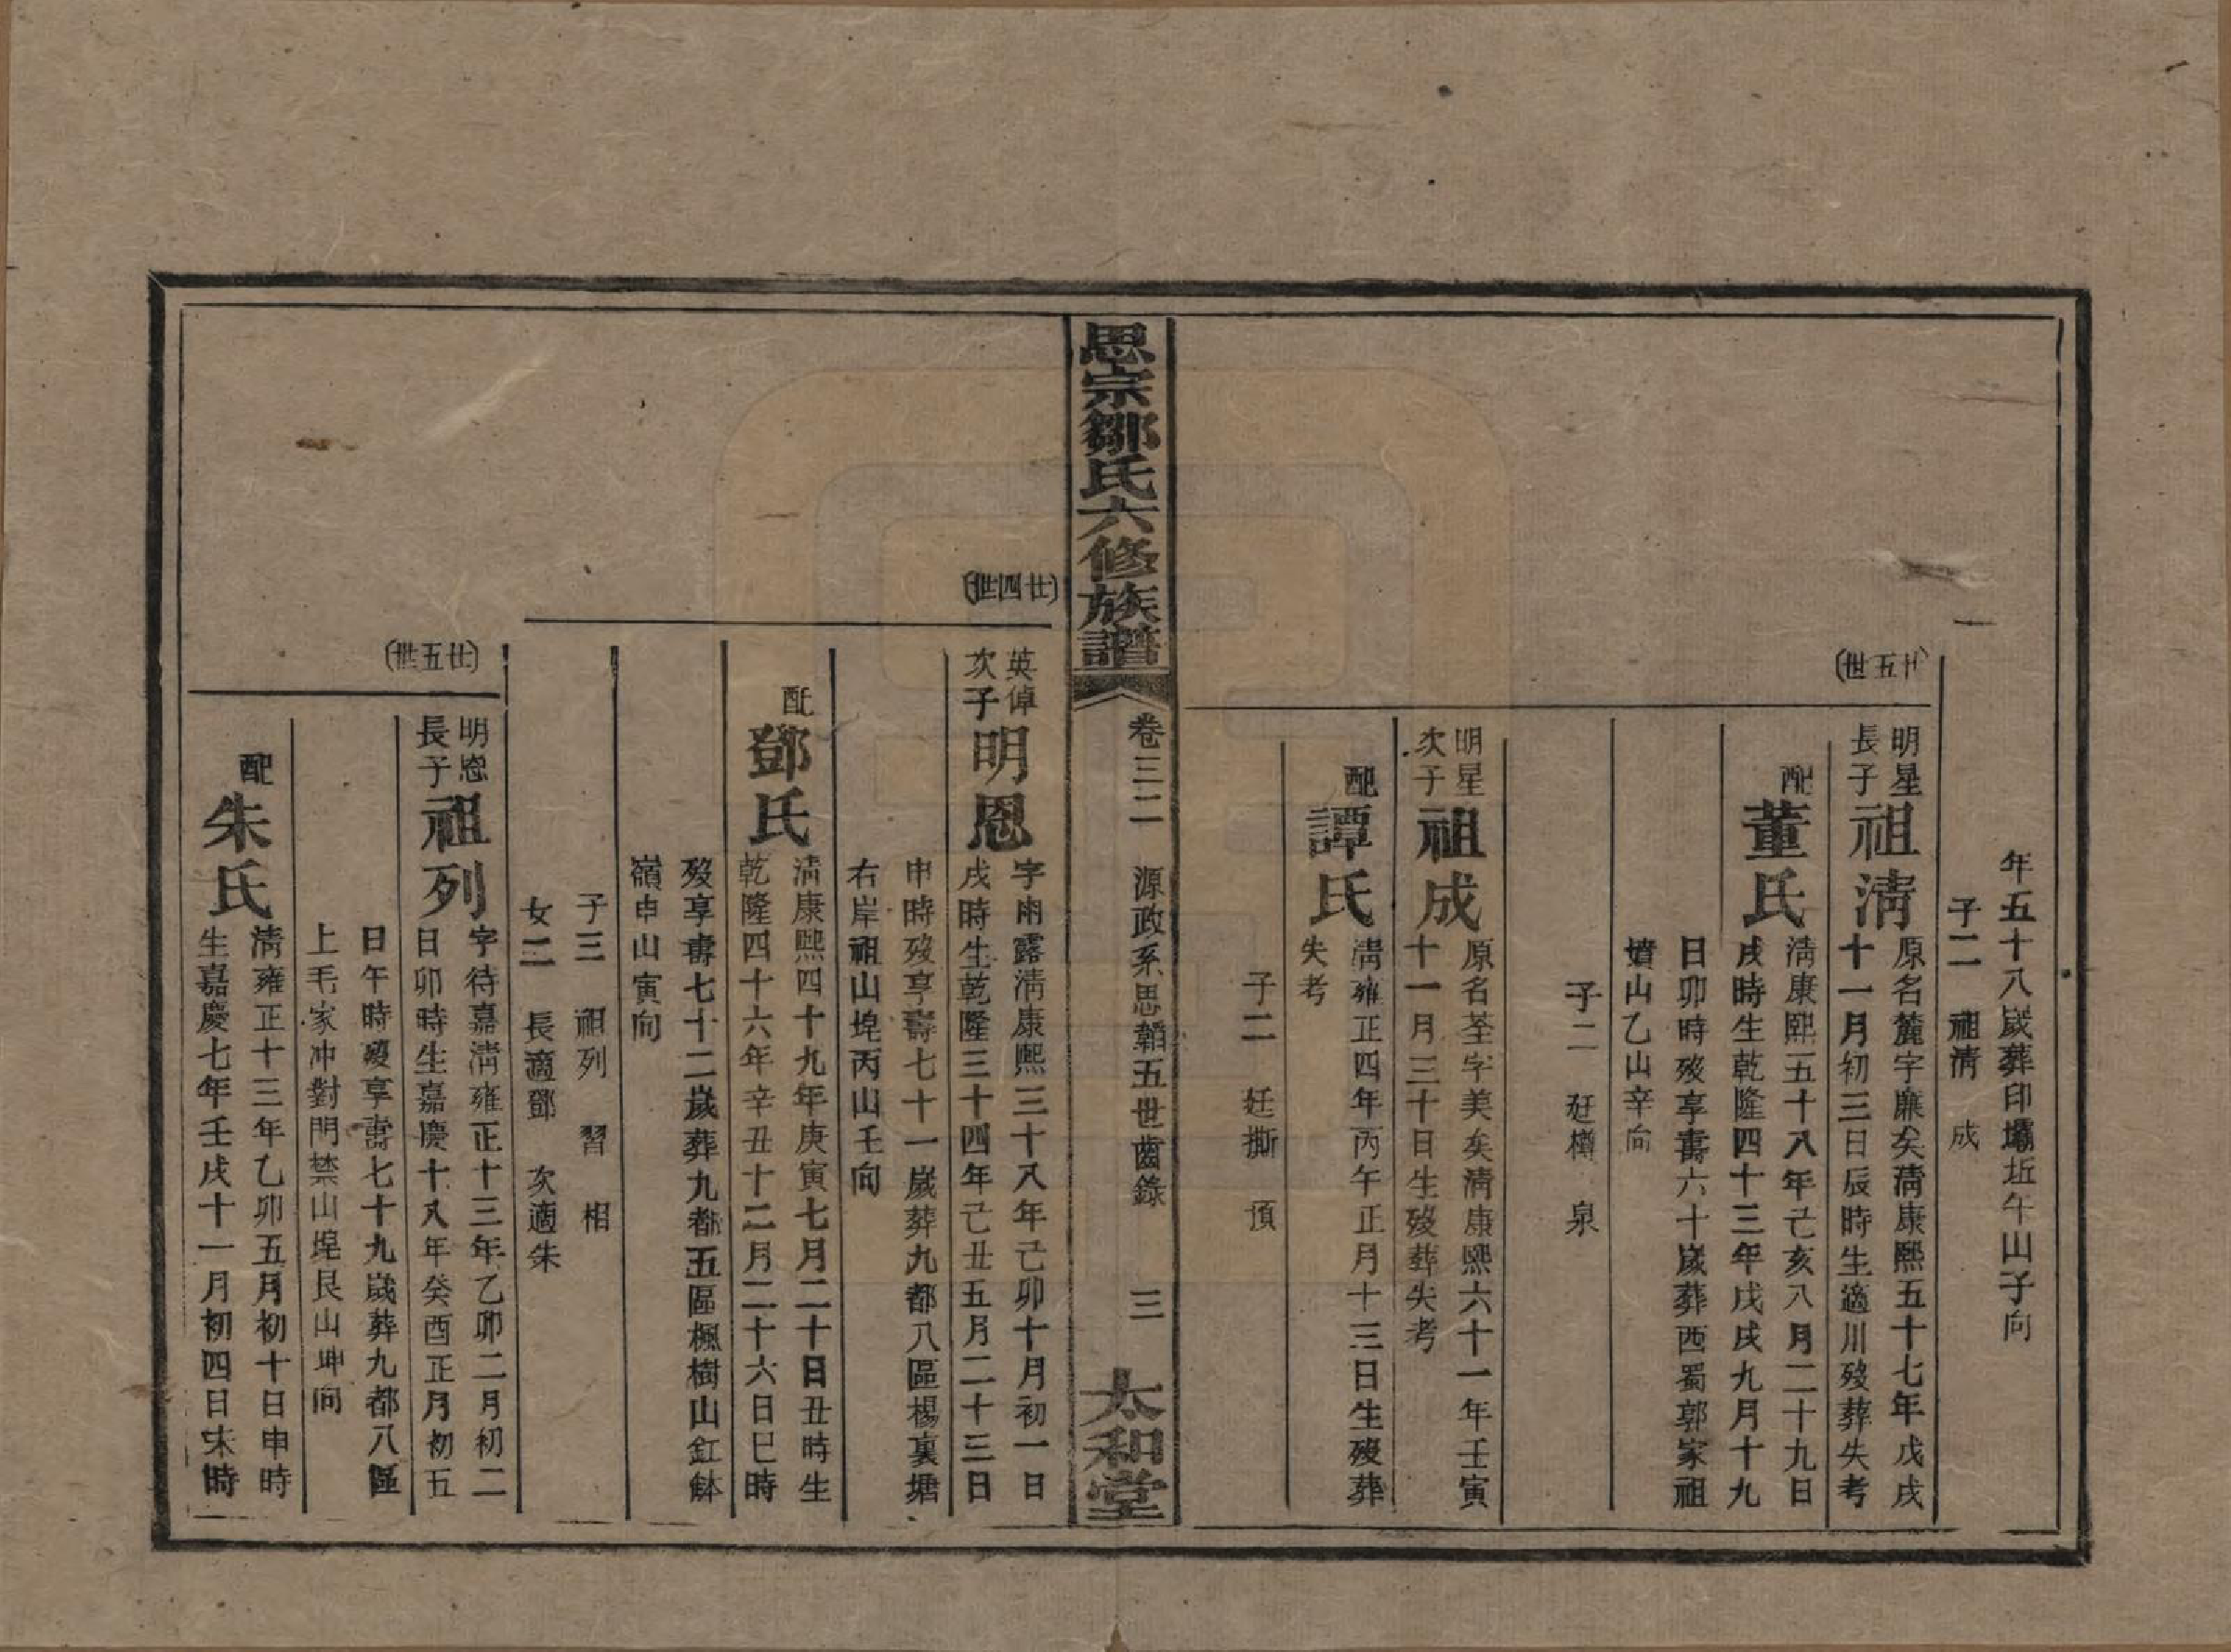 年五十八歲葬印壩坵午山子向
子二　祖淸　成
(廿五世)
明星
長子
祖淸
原名麓字廉矣淸康熙五十七年戊戌
十一月初三日辰時生適川歿葬失考
配
董氏
淸康熙五十八年己亥八月二十九日
戌時生乾隆四十三年戊戌九月十九
日卯時歿享壽六十歲葬西蜀郭家祖
墳山乙山辛向
子二　廷樽　泉
明星
次子
祖成
原名荃字美矣淸康熙六十一年壬寅
十一月三十日生歿葬失考
配
譚氏
淸雍正四年丙午正月十三日生歿葬
失考
子二　廷撕　頂
思宗鄒氏六修族譜
卷三二　源政系思韜五世齒錄　三
太和堂
(廿四世)
英倬
次子
明恩
字雨露淸康熙三十八年己卯十月初一日
戌時生乾隆三十四年己丑五月二十三日
申時歿享壽七十一歲葬九都八區楊裏塘
右岸祖山埦丙山壬向
配
鄧氏
淸康熙四十九年庚寅七月二十日丑時生
乾隆四十六年辛丑十二月二十六日巳時
歿享壽七十二歲葬九都五區楓樹山釭缽
嶺申山寅向
子三　祖列　習　相
女二　長適鄧　次適朱
(廿五世)
明恩
長子
祖列
字待嘉淸雍正十三年乙卯二月初二
日卯時生嘉慶十八年癸酉正月初五
日午時歿享壽七十九歲葬九都八區
上毛家冲對門禁山埦艮山坤向
配
朱氏
淸雍正十三年乙卯五月初十日申時
生嘉慶七年壬戌十一月初四日未時